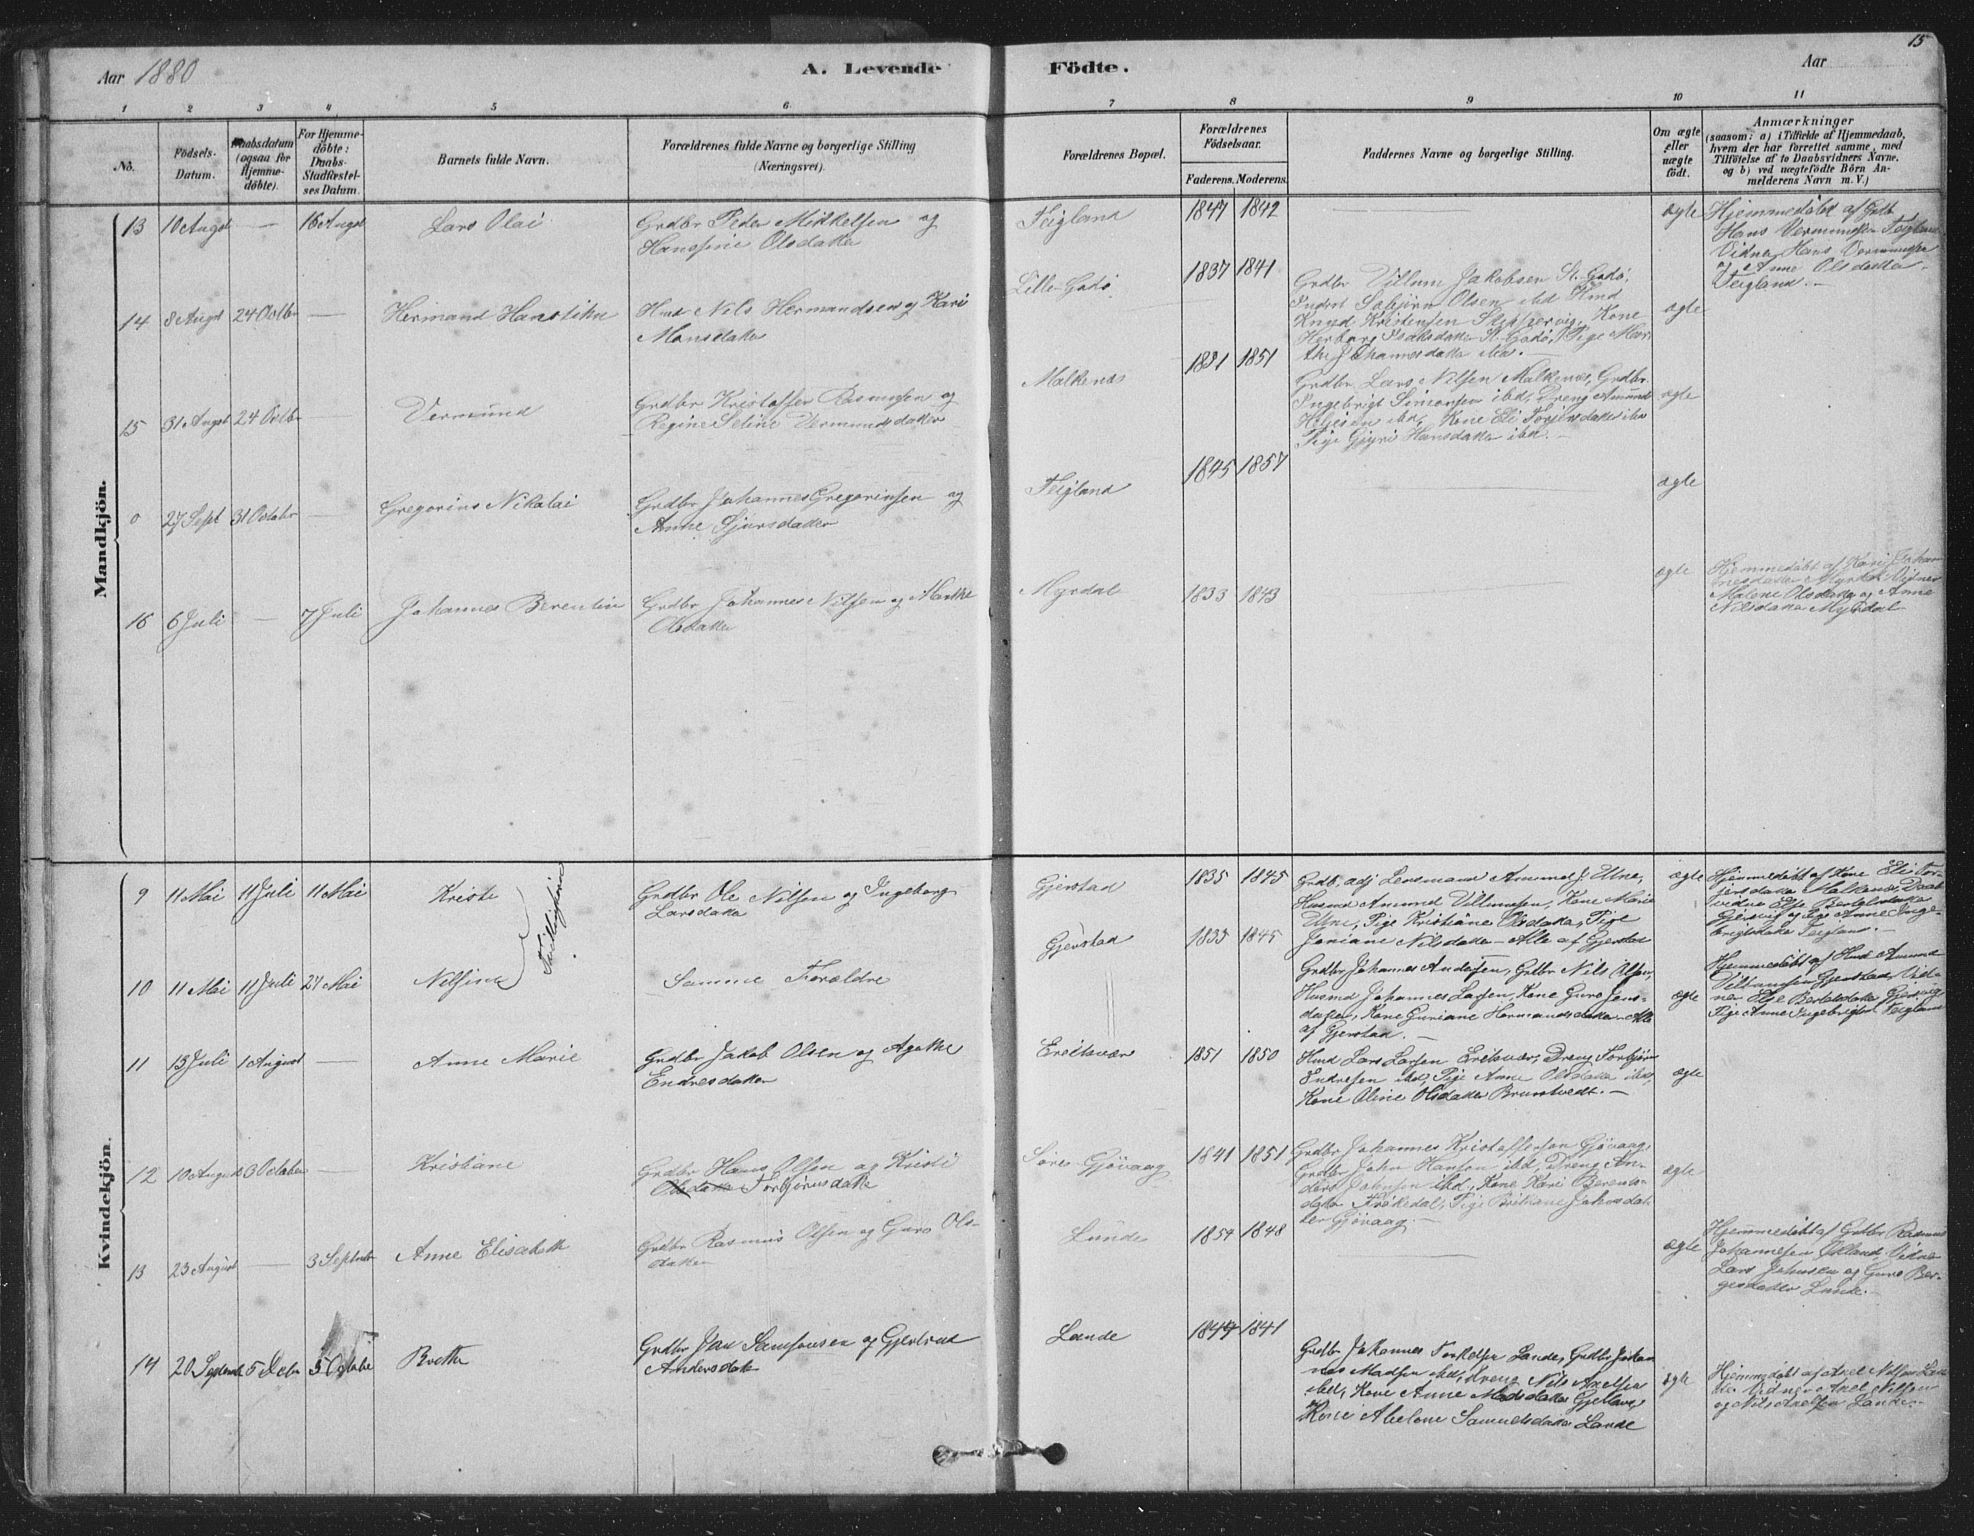 15
Aar 1880
A. Levende Födte.
Aar
1 2 3 4 5 6 7 8 9 10 11
No.
Födsels-
Datum.
Daabsdatum
(ogsaa for
Hjemme-
döbte).
For Hjemme-
döbte:
Daabs-
Stadfæstel-
ses Datum.
Barnets fulde Navn.
Forældrenes fulde Navne og borgerlige Stilling
(Næringsvei).
Forældrenes Bopæl.
Forældrenes
Födselsaar.
Faderens. Moderens.
Faddernes Navne og borgerlige Stilling.
Om ægte
eller
uægte
födt.
Anmærkninger
(saasom: a) i Tilfælde af Hjemmedaab,
hvem der har forrettet samme, med
Tilföielse af to Daabsvidners Navne,
og b) ved uægtefödte Börn An-
melderens Navn m. V.)
Mandkjön.
13 10 Augst — 16 Augst Lars Olai
Grdbr Peder Mikkelsen og
Hansine Olsdatter
Feigland 1847 1842 ægte
Hjemmedöbt af
Hans Vermundsen Feigland
Vidner Hans Vermundsen
og Anne Olsdatter
Feigland.
14 8 Augst 24 Octbr — Hermand Hanstihn
Hmd Nils Hermandsen og Kari
Monsdatter
Lille-Godö 1837 1841
Grdbr Villum Jakobsen St. Godö,
Olsen ibd Hmd
Knud Kristensen Skjppervig, Kone
Herborg Isaksdatter St. Godö, Pige Mar-
the Johannesdatter ibd.
ægte
15 31 Augst 24 Octbr — Vermund
Grdbr Kristoffer Rasmusen og
Regine Seline Vermundsdatter
Malkenæs 1821 1851
Grdbr Lars Nilsen Malkenæs, Grdbr
Ingebrigt Simonsen ibd, Dreng Amund
Helgesen ibd, Kone Eli Torjersdatter ibd
Pige Gjyri Hansdatter ibd.
ægte
0 27 Sept 31 Octobr — Gregorius Nikolai
Grdbr Johannes Gregoriusen og
Anne Sjursdatter
Feigland 1845 1857 ægte
16 6 Juli — 7 Juli Johannes Berentin
Grdbr Johannes Nilsen og Marthe
Olsdatter
Myrdal 1833 1843 ægte
Hjemmedöbt af Kari Johan-
nesdatter Myrdal Vidner
Malene Olsdatter og Anne
Nilsdatter Myrdal
Kvindekjön.
9 11 Mai 11 Juli 11 Mai Kristi
Tvillingsöstre
Grdbr Ole Nilsen og Ingeborg
Larsdatter
Gjerstad 1835 1845
Grdb, adj Lensmand Ammon J Utne,
Husmd Amund Villumsen, Kone Marie
Utne, Pige Kristiane Olsdatter, Pige
Joriane Nilsdatter — Alle af Gjerstad
ægte
Hjemmedöbt af Kone Eli Tor-
jersdatter Malkenæs, Daab-
vidner Else Bertelsdatter
Gjersvig og Pige Anne Inge-
brigtsdatter Feigland.
10 11 Mai 11 Juli 27 Mai Nilsine
Samme Forældre
Gjerstad 1835 1845
Grdbr Johannes Andersen, Grdbr Nils Olsen,
Husmd Johannes Larsen, Kone Guro Jens-
datter, Kone Guriane Hermandsdatter Alle
af Gjerstad.
ægte
Hjemmedöbt af Hmd Amund
Villumsen Gjerstad, Vid-
ner Else Bertelsdatter Gjersvig
Pige Anne Ingebrigtsd Feigland
11 15 Juli 1 August — Anne Marie
Grdbr Jakob Olsen og Agathe
Endresdatter
Ereitsvær 1851 1850
Hmd Lars Larsen Ereitsvær, Dreng Torbjörn
Endresen ibd, Pige Anne Olsdatter ibd,
Kone Oline Olsdatter Bruntvedt.
ægte
12 10 August 3 October — Kristiane
Grdbr Hans Olsen og Kristi
Olsdatter Torbjörnsdatter
Söre-Gjövaag 1841 1851
Grdbr Johannes Kristoffersen Gjövaag,
Grdbr John Hansen ibd, Dreng An-
ders Johnsen ibd, Kone Kari Berents-
datter Frökedal, Pige Brithane Johnsdat-
ter Gjövaag.
ægte
13 23 August — 3 Septmbr Anne Elisabeth
Grdbr Rasmus Olsen og Guro Ols-
datter
Lunde 1854 1848 ægte
Hjemmedöbt af Grdbr Rasmus
Johannesen Økland Vidner
Lars Johnsen og Guro Ber-
gesdatter Lunde.
14 20 Septembr 5 Decbr 5 October Brethe
Grdbr Jan Samsonsen og Gjertrud
Andersdatter
Lande 1844 1841
Grdbr Johannes Torkelsen Lande, Grdbr Johan-
nes Madsen ibd, Dreng Nils Axelsen
ibd, Kone Anne Madsdatter Gjetlavig
Kone Abelone Samuelsdatter Lande
ægte
Hjemmedöbt af Axel Nilsen Lan-
de. Vidner Axel Nilsen
og Nils Axelsen Lande.